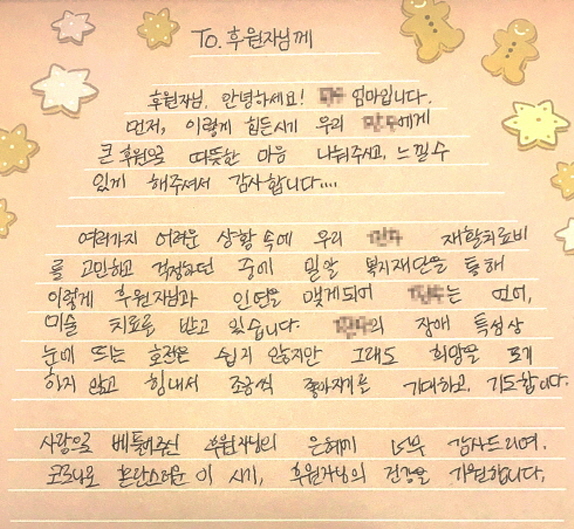 To. 후원자님께
후원자님, 안녕하세요! 엄마입니다.
먼저, 이렇게 힘든시기 우리 에게
큰 후원으로 따뜻한 마음 나눠주시고, 느낄수
있게 해주셔서 감사합니다....
여러가지 어려운 상황 속에 우리 재활치료비
를 고민하고 걱정하던 중에 밀알 복지재단을 통해
이렇게 후원자님과 인연을 맺게되어 는 언어,
미술 치료를 받고 있습니다. 의 장애 특성상
눈에 띄는 호전은 쉽지 않지만 그래도 희망을 포기
하지 않고 힘내서 조금씩 좋아지기를 기대하고, 기도합니다.
사랑으로 베풀어주신 후원자님의 은혜에 너무 감사드리며.
코로나로 혼란스러운 이 시기, 후원자님의 건강을 기원합니다.